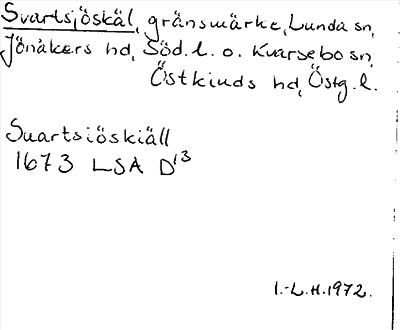 Svartsjöskäl, gränsmärke, Lunda sn,
Jönåkers hd, Söd.l. o. Kvarsebo sn,
Östkinds hd, Östg.l.
Suartsiöskiäll
1673 LSA D13
I.-L.H.1972.